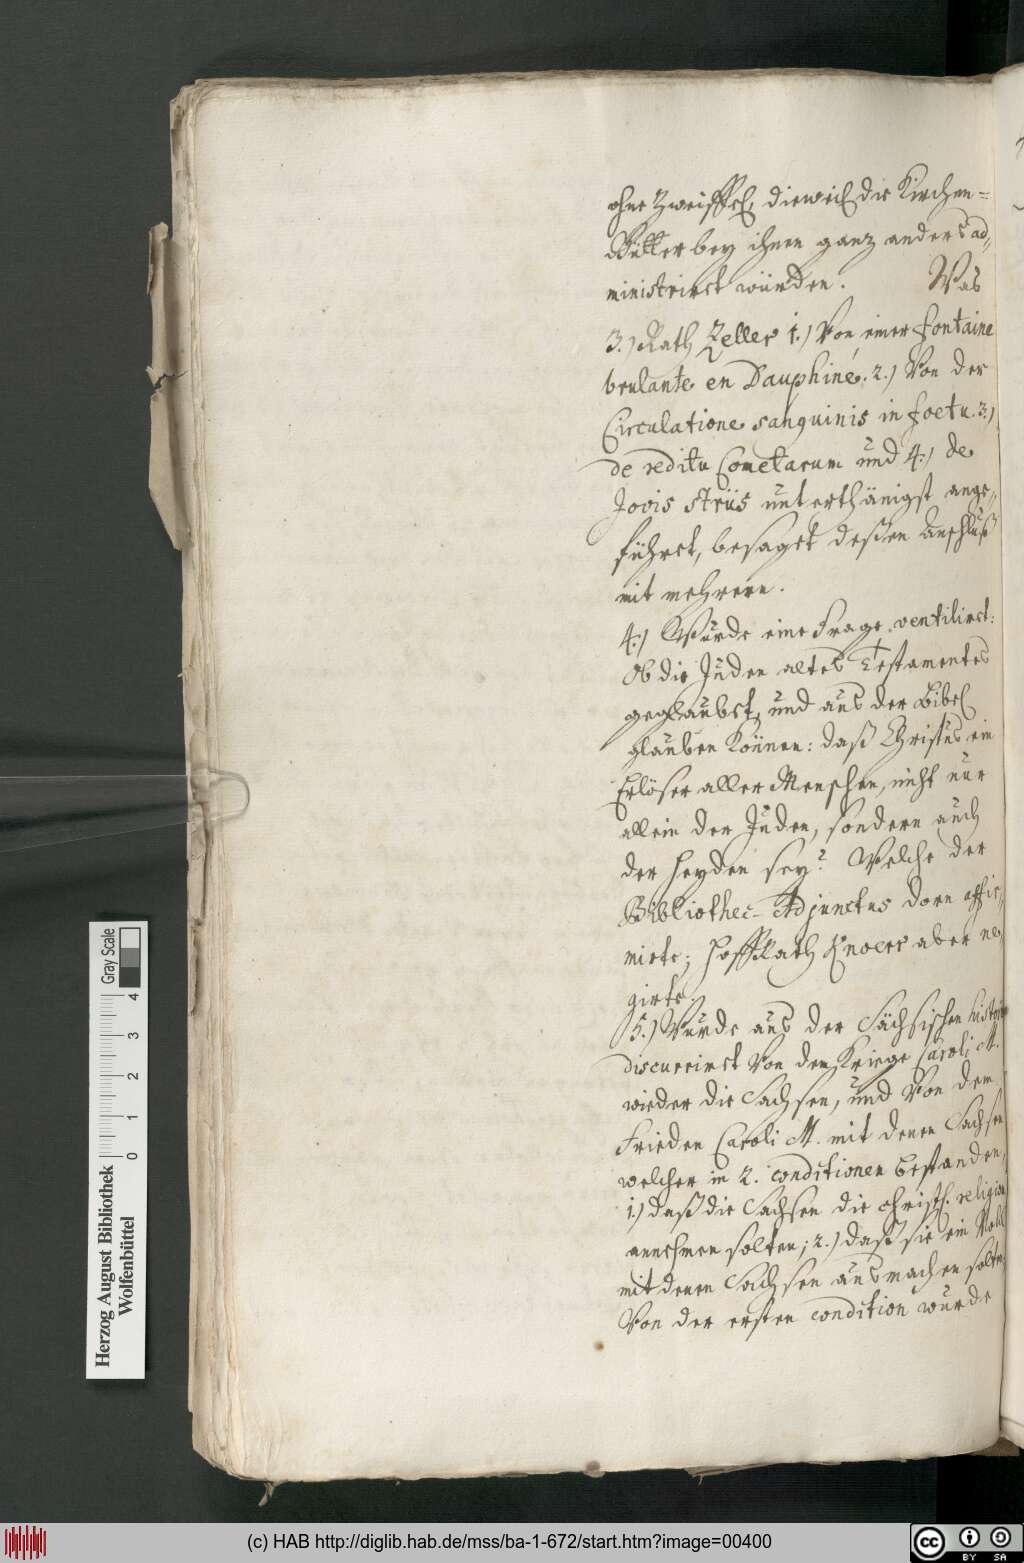 ohne Zweiffel, dieweil die Kirchen=
Gütter bey ihnen ganz anders ad=
ministriret würden. Was
3.) Rath Zeller 1.) Von einer fontaine
brulante en Dauphiné. 2.) Von der
Circulatione sanguinis in foetu. 3.)
de reditu Cometarum und 4.) de
Jovis striis unterthänigst ange=
führet, besaget deßen Anschluß
mit mehrern.
4.) Wurde eine Frage ventiliret:
Ob die Juden altes Testamentes
geglaubet, und aus der Bibel
glauben können: daß Christus ein
Erlöser aller Menschen, nicht nur
allein der Juden, sondern auch
der Heyden sey? Welche der
Bibliothec-Adjunctus Dorn affir=
mirte; HoffRath Knoerr aber ne=
girte.
5.) Wurde aus der Sächsischen histori
discurriret von dem Kriege Caroli M.
wieder die Sachsen, und von dem
Frieden Caroli M. mit denen Sachsen
welcher in 2. conditionen bestanden,
1.) daß die Sachsen die christl. religion
annehmen solten; 2.) daß sie ein Volk
mit denen Sachsen ausmachen solten
Von der ersten condition wurde
Herzog August Bibliothek
Wolfenbüttel
0 1 2 3 4
Gray Scale
(c) HAB http://diglib.hab.de/mss/ba-1-672/start.htm?image=00400
cc BY SA